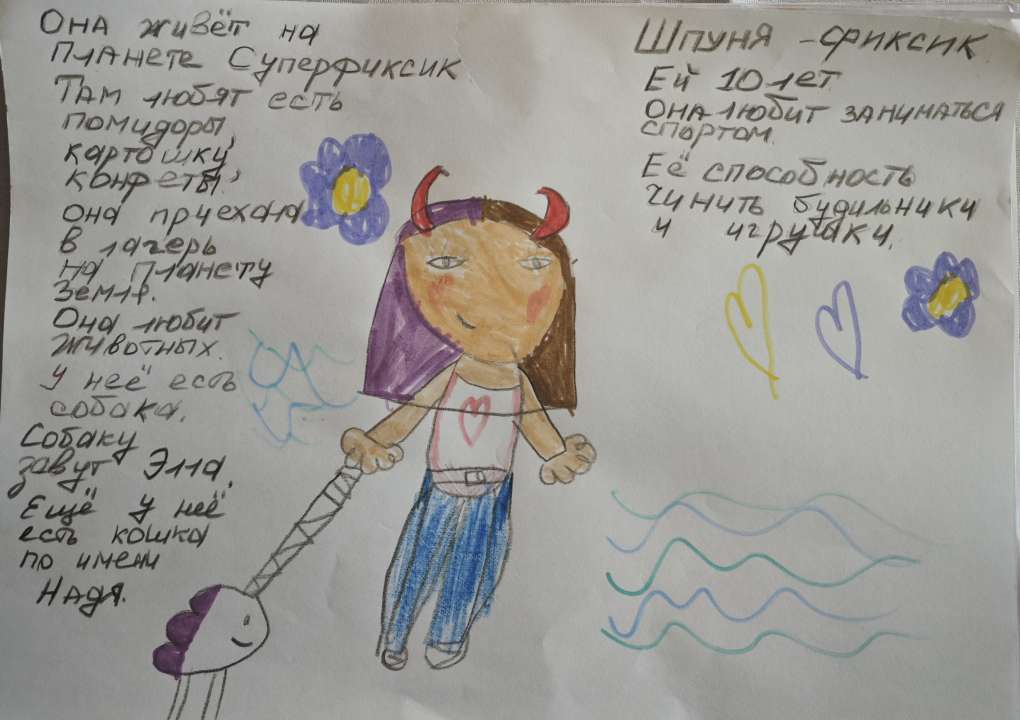 Она живёт на
планете Суперфиксик
Там любят есть
помидоры,
картошку,
конфеты,
она приехала
в лагерь
на планету
Земля.
Она любит
животных.
У неё есть
собака.
Собаку
завут Элла.
Ещё у неё
есть кошка
по имени
Надя.
Шпуня - фиксик
Ей 10 лет
Она любит заниматься
спортом.
Её способность
чинить будильники
и игрушки.